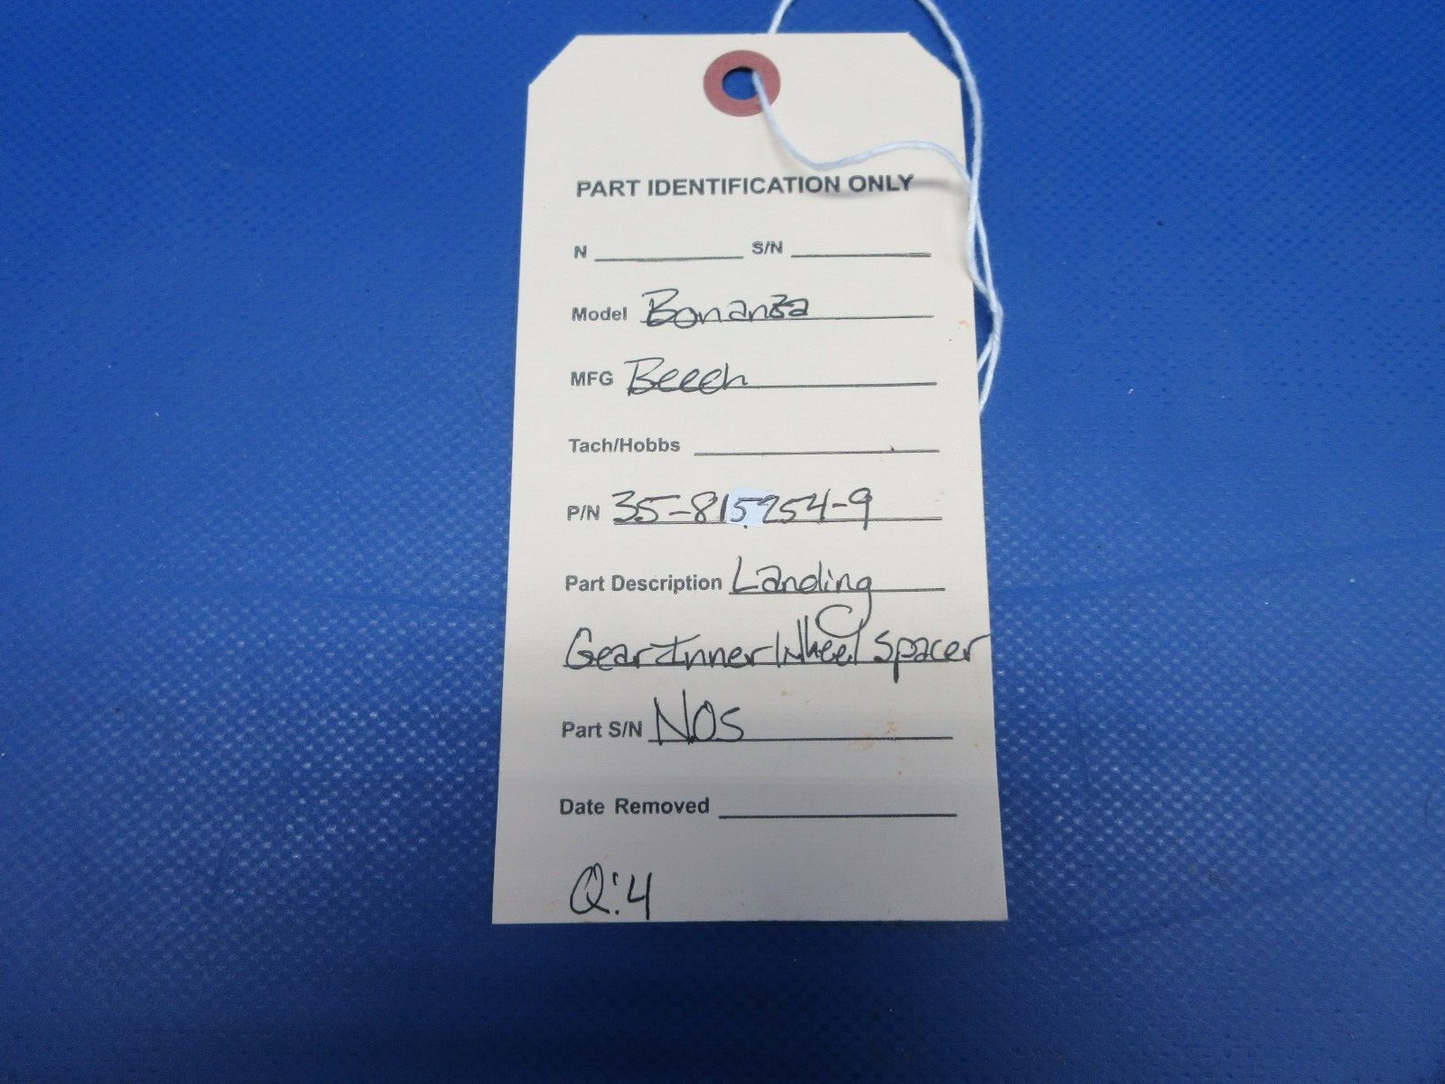 PART IDENTIFICATION ONLY
N S/N
Model Bonanza
MFG Beech
Tach/Hobbs
P/N 35-815254-9
Part Description Landing
Gear Inner Wheel Spacer
Part S/N NOS
Date Removed
Q:4